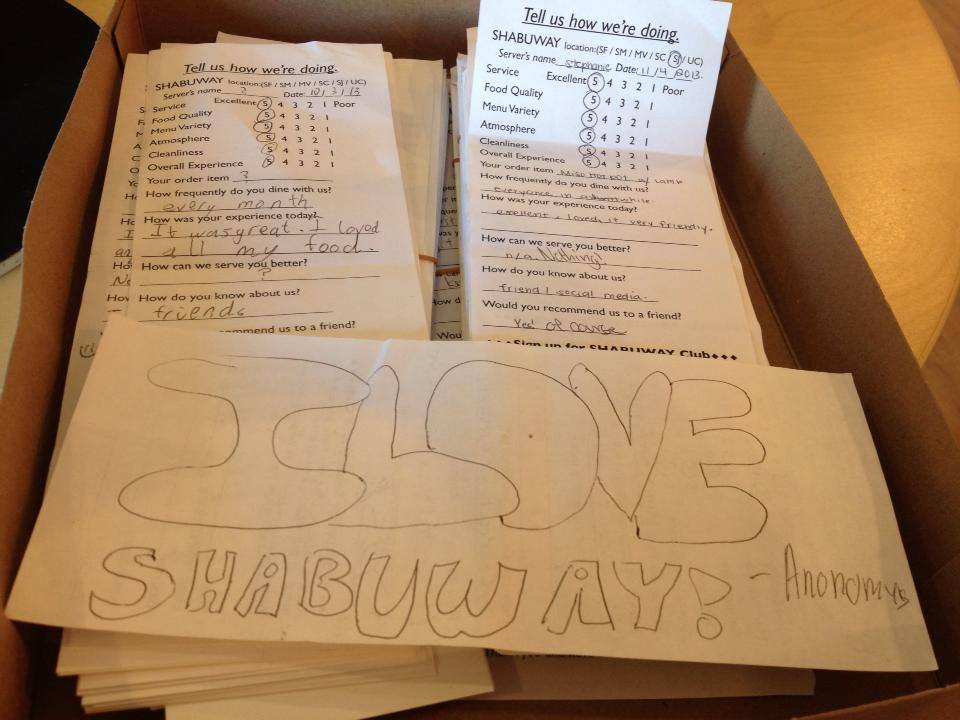 Tell us how we're doing.
SHABUWAY location:(SF / SM / MV / SC / SJ / UC)
Server's name ? Date: 10/3/13
Service Excellent 5 4 3 2 1 Poor
Food Quality 5 4 3 2 1
Menu Variety 5 4 3 2 1
Atmosphere 5 4 3 2 1
Cleanliness 5 4 3 2 1
Overall Experience 5 4 3 2 1
Your order item ?
How frequently do you dine with us?
every month
How was your experience today?
It was great. I loved
all my food.
How can we serve you better?
?
How do you know about us?
friends
commend us to a friend?
Tell us how we're doing.
SHABUWAY location:(SF / SM / MV / SC / SJ / UC)
Server's name Stephanie Date: 11/4/2013.
Service Excellent 5 4 3 2 1 Poor
Food Quality 5 4 3 2 1
Menu Variety 5 4 3 2 1
Atmosphere 5 4 3 2 1
Cleanliness 5 4 3 2 1
Overall Experience 5 4 3 2 1
Your order item Miso Hot pot w/ lamb
How frequently do you dine with us?
everyonce in awhile.
How was your experience today?
excellent, loved it very friendly.
How can we serve you better?
n/a Nothing!
How do you know about us?
friend / social media.
Would you recommend us to a friend?
Yes! Of course
Sign up for SHABUWAY Club
I LOVE
SHABUWAY! - Anonomys